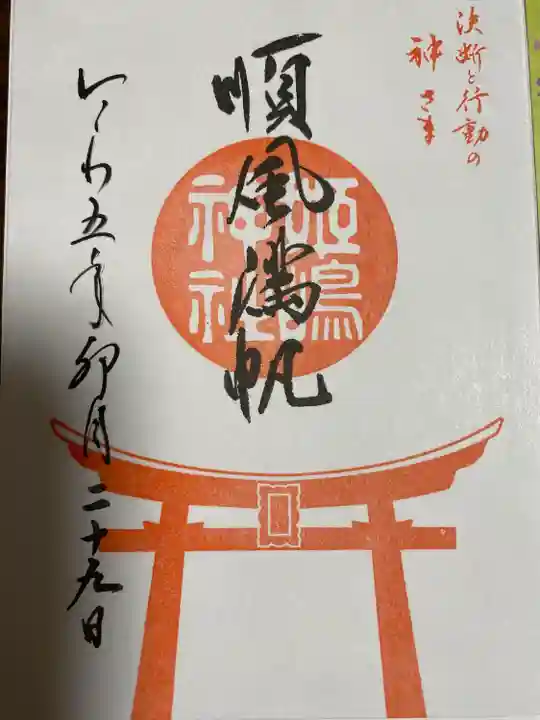 決断と行動の
神さま
順風満帆
姫嶋
神社
れいわ五年卯月二十九日